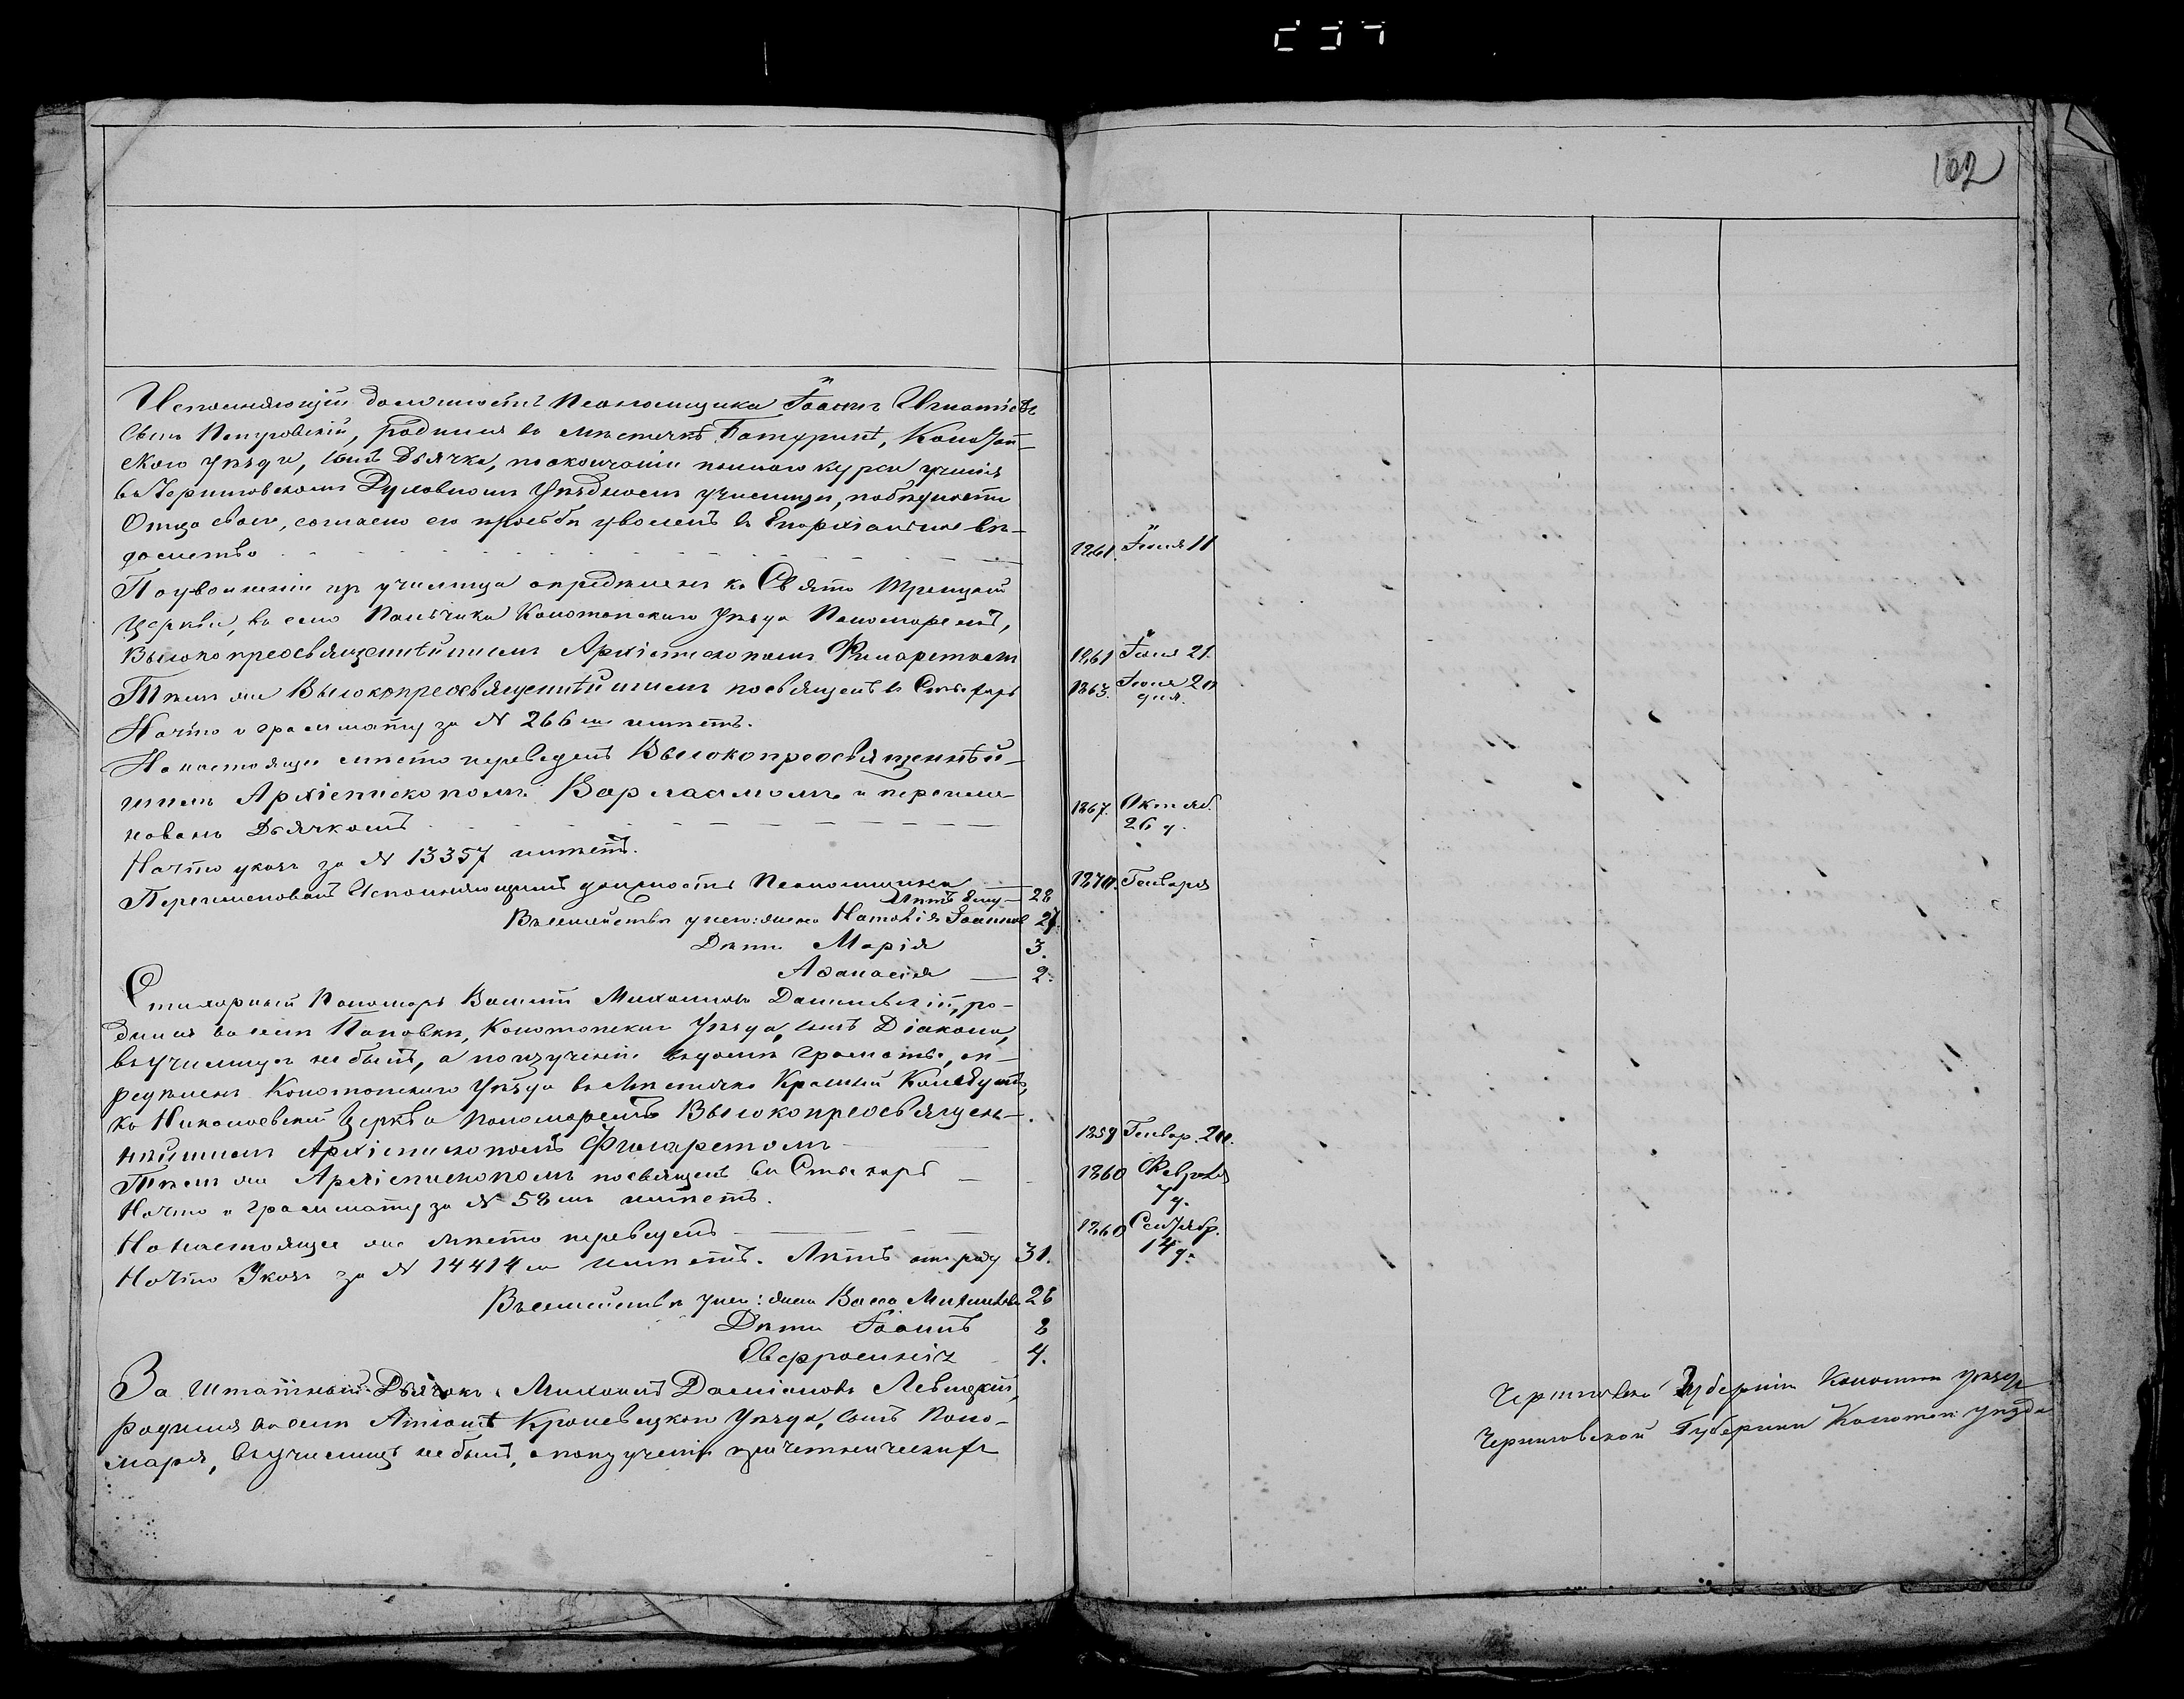 102
Исполняющій должность Псаломщика Іоаннъ Игнатіевъ
Сынъ Петровскій, родился въ мѣстечкѣ Батуринѣ, Конотоп-
скаго уѣзда, сынъ Дьячка, по окончаніи полнаго курса ученія
въ Черниговскомъ Духовномъ Уѣздномъ училищѣ, по бѣдности
Отца своего, согласно его просьбѣ уволенъ въ Епархіальное вѣ-
домство 1861. Іюня 11
По увольненіи изъ училища опредѣленъ къ Свято Троицкой
Церкви, въ село Поповку Конотопскаго Уѣзда Пономаремъ,
Высокопреосвященнѣйшимъ Архіепископомъ Филаретомъ 1861 Іюня 21.
Тѣмъ же Высокопреосвященнѣйшимъ посвященъ въ Стихарь 1863. Іюня 20 дня.
На что и грамматy за № 266 мъ имѣетъ.
На настоящее мѣсто переведенъ Высокопреосвященнѣй-
шимъ Архіепископомъ Варлаамомъ и переиме-
нованъ Дьячкомъ 1867. Октяб. 26 д.
На что указъ за № 13357 имѣетъ.
Переименованъ Исполняющимъ должность Псаломщика 1870. Генваря
Лѣтъ ему 28
Въ семействѣ у него: жена Наталія Іоаннова 27.
Дѣти Марія 3.
Аѳанасія 2.
Стихарный Пономарь Василій Михаиловъ Данилевскій, ро-
дился въ селѣ Поповкѣ, Конотопскаго Уѣзда, сынъ Діакона,
въ училищѣ не былъ, а по изученіи въ домѣ грамотѣ, оп-
редѣленъ Конотопскаго Уѣзда въ Мѣстечко Красный Колядинъ,
къ Николаевской Церкви Пономаремъ Высокопреосвящен-
нѣйшимъ Архіепископомъ Филаретомъ 1859 Генвар. 20.
Тѣмъ же Архіепископомъ посвященъ въ Стихарь 1860 Февраля 7 д.
На что и грамматy за № 58 мъ имѣетъ.
На настоящее же мѣсто переведенъ 1860 Сентябр. 14 д.
На что Указъ за № 14414 мъ имѣетъ. Лѣтъ отъ роду 31.
Въ семействѣ у него: жена Васса Михаилова 26
Дѣти Іоаннъ 8
Евфросинія 4.
Заштатный Дьячокъ Михаилъ Даміановъ Левицкій,
родился въ селѣ Кролевецкаго Уѣзда, сынъ Поно-
маря, въ училищѣ не былъ, а по изученіи
Черниговской Губерніи Конотоп уѣзда
Черниговской Губерніи Конотоп: уѣзда